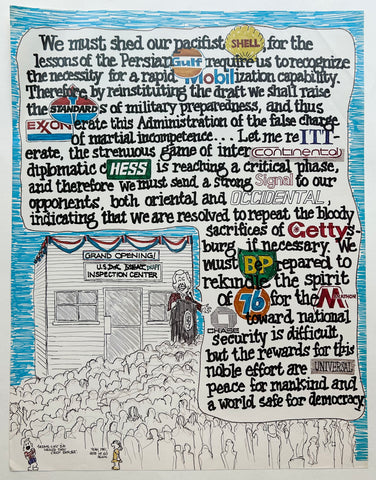 We must shed our pacifist SHELL, for the
lessons of the Persian Gulf require us to recognize
the necessity for a rapid Mobilization capability.
Therefore by reinstituting the draft we shall raise
the STANDARDs of military preparedness, and thus
EXXONerate this Administration of the false charge
of martial incompetence... Let me reITT-
erate, the strenuous game of intercontinental
diplomatic cHESS is reaching a critical phase,
and therefore we must send a strong Signal to our
opponents, both oriental and OCCIDENTAL,
indicating that we are resolved to repeat the bloody
sacrifices of Gettys-
burg, if necessary. We
must BP repared to
rekindle the spirit
of 76 for the MARATHON
CHASE toward national
security is difficult,
but the rewards for this
noble effort are UNIVERSAL
peace for mankind and
a world safe for democracy.
GRAND OPENING!
U.S. DRAFT
INSPECTION CENTER